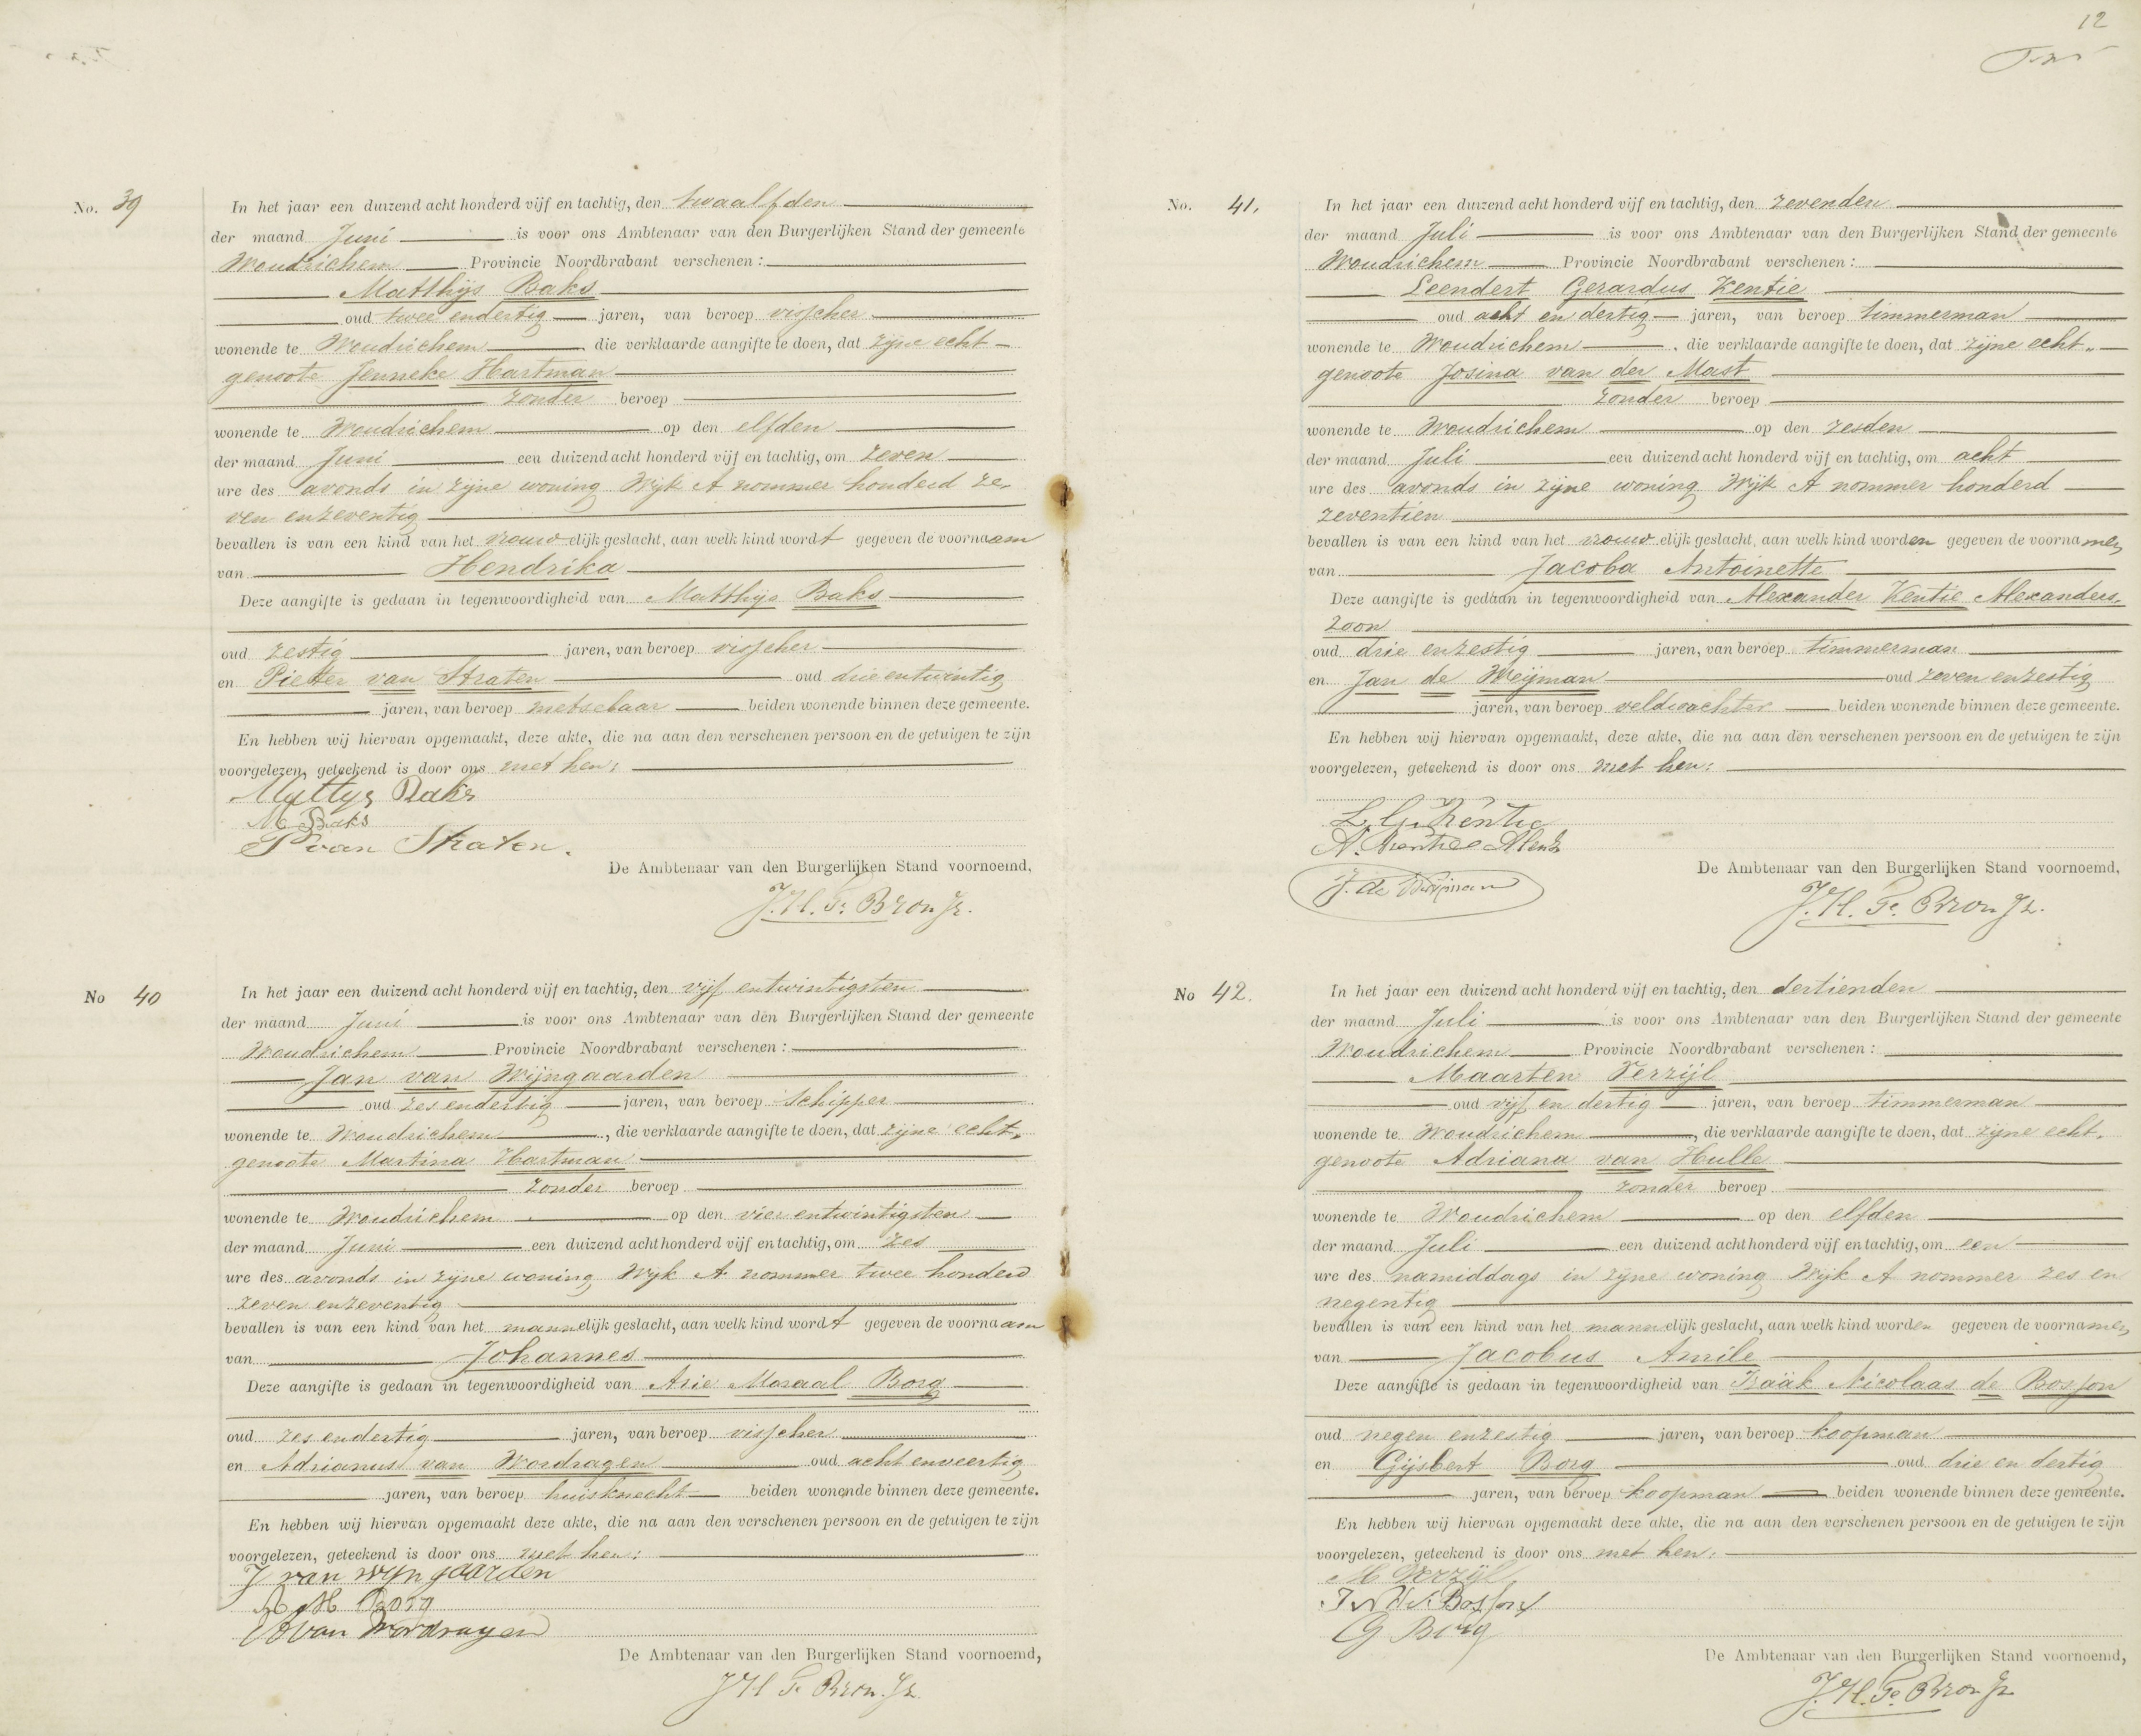 12
No. 39
In het jaar een duizend acht honderd vijf en tachtig, den twaalfden
der maand Juni is voor ons Ambtenaar van den Burgerlijken Stand der gemeente
Woudrichem Provincie Noordbrabant verschenen:
Matthijs Baks
oud twee endertig jaren, van beroep visscher
wonende te Woudrichem die verklaarde aangifte te doen, dat zijne echt-
genoote Jenneke Hartman
zonder beroep
wonende te Woudrichem op den elfden
der maand Juni een duizend acht honderd vijf en tachtig, om zeven
ure des avonds in zijne woning Wijk A nommer honderd ze-
ven enzeventig
bevallen is van een kind van het vrouwelijk geslacht, aan welk kind wordt gegeven de voornaam
van Hendrika
Deze aangifte is gedaan in tegenwoordigheid van Matthijs Baks
oud zestig jaren, van beroep visscher
en Pieter van Straten oud drie entwintig
jaren, van beroep metselaar beiden wonende binnen deze gemeente.
En hebben wij hiervan opgemaakt, deze akte, die na aan den verschenen persoon en de getuigen te zijn
voorgelezen, geteekend is door ons met hen:
Mattys Baks
M Baks
P van Straten.
De Ambtenaar van den Burgerlijken Stand voornoemd,
Bron Jr.
No 40
In het jaar een duizend acht honderd vijf en tachtig, den vijf entwintigsten
der maand Juni is voor ons Ambtenaar van den Burgerlijken Stand der gemeente
Woudrichem Provincie Noordbrabant verschenen:
Jan van Wijngaarden
oud zes endertig jaren, van beroep schipper
wonende te Woudrichem, die verklaarde aangifte te doen, dat zijne echt-
genoote Martina Hartman
zonder beroep
wonende te Woudrichem op den vier entwintigsten
der maand Juni een duizend acht honderd vijf en tachtig, om zes
ure des avonds in zijne woning Wijk A nommer twee honderd
zeven enzeventig
bevallen is van een kind van het mannelijk geslacht, aan welk kind wordt gegeven de voornaam
van Johannes
Deze aangifte is gedaan in tegenwoordigheid van Arie Maraal Borg
oud zes endertig jaren, van beroep visscher
en Adrianus van Wordragen oud acht enveertig
jaren, van beroep huisknecht beiden wonende binnen deze gemeente.
En hebben wij hiervan opgemaakt deze akte, die na aan den verschenen persoon en de getuigen te zijn
voorgelezen, geteekend is door ons met hen:
J van Wyngaarden
A M Borg
A van Wordragen
De Ambtenaar van den Burgerlijken Stand voornoemd,
Bron. Jr.
No. 41.
In het jaar een duizend acht honderd vijf en tachtig, den zevenden
der maand Juli is voor ons Ambtenaar van den Burgerlijken Stand der gemeente
Woudrichem Provincie Noordbrabant verschenen:
Leendert Gerardus Kentie
oud acht en dertig jaren, van beroep timmerman
wonende te Woudrichem, die verklaarde aangifte te doen, dat zijne echt-
genoote Josina van der Mast
zonder beroep
wonende te Woudrichem op den zesden
der maand Juli een duizend acht honderd vijf en tachtig, om acht
ure des avonds in zijne woning Wijk A nommer honderd
zeventien
bevallen is van een kind van het vrouwelijk geslacht, aan welk kind worden gegeven de voornamen
van Jacoba Antoinette
Deze aangifte is gedaan in tegenwoordigheid van Alexander Kentie Alexanders-
zoon
oud drie enzestig jaren, van beroep timmerman
en Jan de Weijman oud zeven enzestig
jaren, van beroep veldwachter beiden wonende binnen deze gemeente.
En hebben wij hiervan opgemaakt, deze akte, die na aan den verschenen persoon en de getuigen te zijn
voorgelezen, geteekend is door ons met hen:
L. G. Kentie
A. Kentie Alexz
J. de Weijman
De Ambtenaar van den Burgerlijken Stand voornoemd,
Bron Jr.
No 42.
In het jaar een duizend acht honderd vijf en tachtig, den dertienden
der maand Juli is voor ons Ambtenaar van den Burgerlijken Stand der gemeente
Woudrichem Provincie Noordbrabant verschenen:
Maarten Verzijl
oud vijf en dertig jaren, van beroep timmerman
wonende te Woudrichem, die verklaarde aangifte te doen, dat zijne echt-
genoote Adriana van Hulle
zonder beroep
wonende te Woudrichem op den elfden
der maand Juli een duizend acht honderd vijf en tachtig, om een
ure des namiddags in zijne woning Wijk A nommer zes en
negentig
bevallen is van een kind van het mannelijk geslacht, aan welk kind worden gegeven de voornamen
van Jacobus Amile
Deze aangifte is gedaan in tegenwoordigheid van Izaäk Nicolaas de Bosson
oud negen enzestig jaren, van beroep koopman
en Gijsbert Borg oud drie en dertig
jaren, van beroep koopman beiden wonende binnen deze gemeente.
En hebben wij hiervan opgemaakt deze akte, die na aan den verschenen persoon en de getuigen te zijn
voorgelezen, geteekend is door ons met hen:
M Verzijl
I N de Bosson
G Borg
De Ambtenaar van den Burgerlijken Stand voornoemd,
Bron Jr